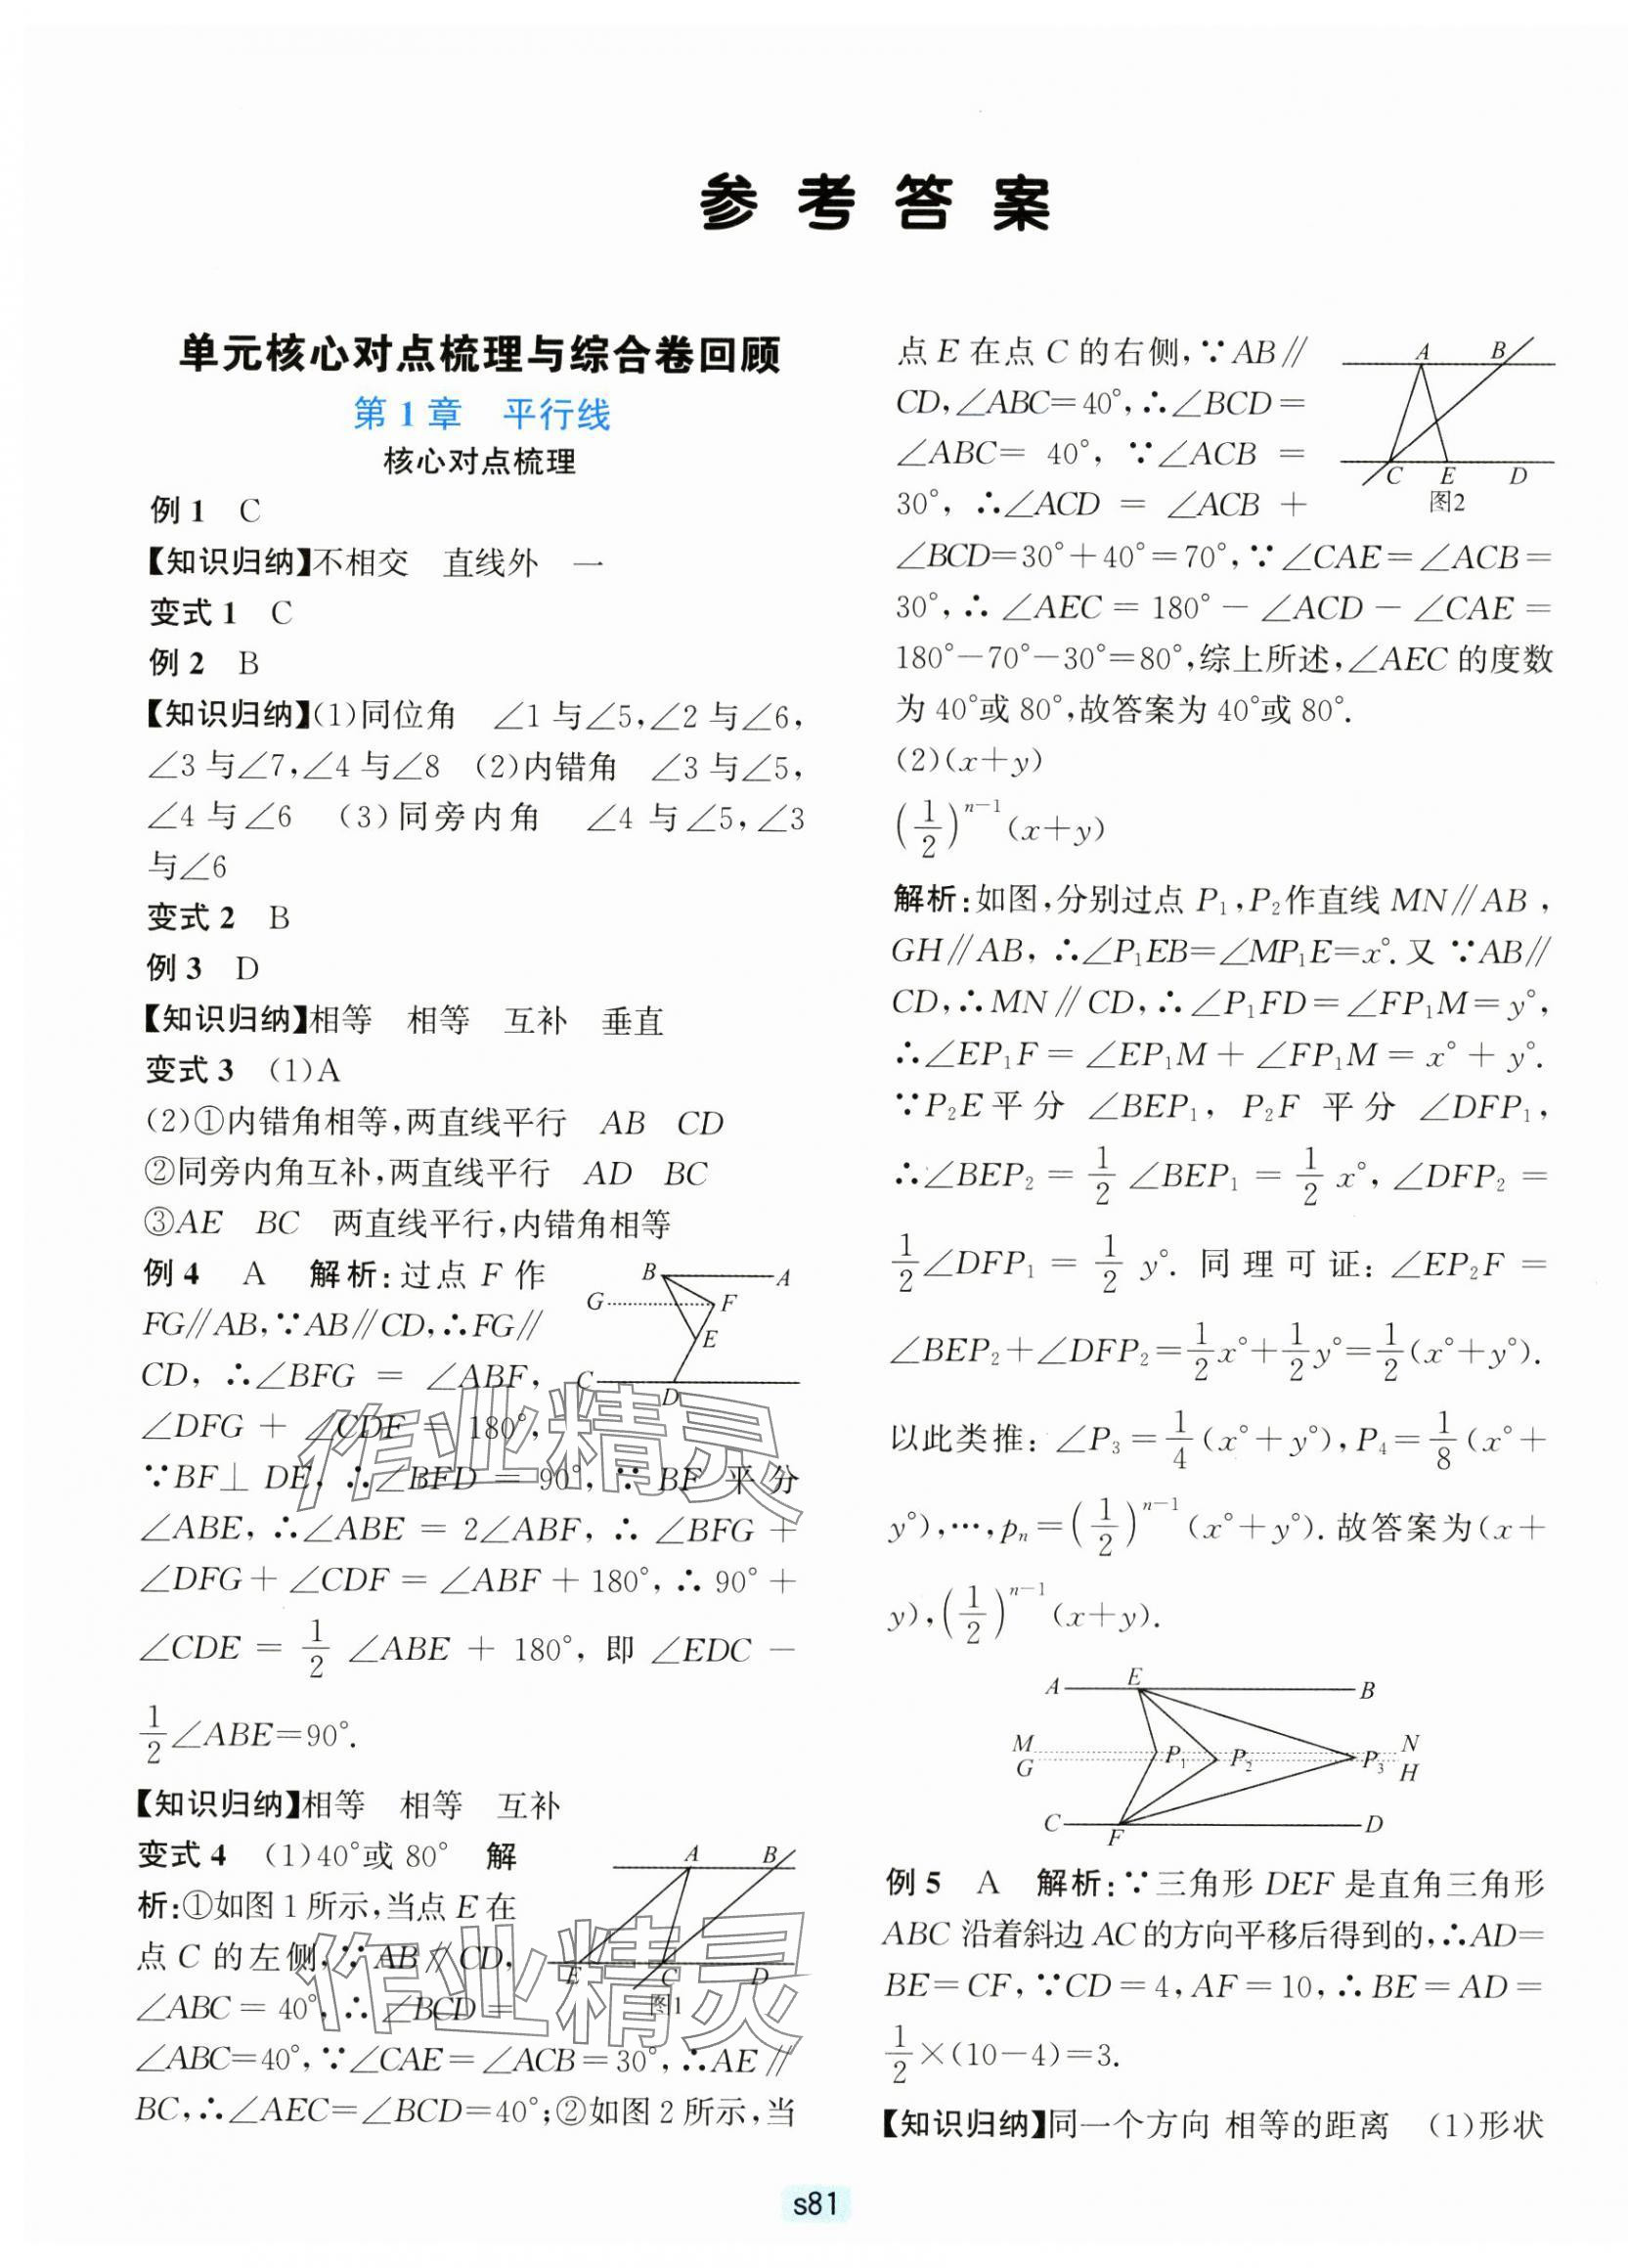 参考答案
单元核心对点梳理与综合卷回顾
第1章 平行线
核心对点梳理
例1 C
【知识归纳】不相交 直线外 一
变式1 C
例2 B
【知识归纳】(1)同位角 ∠1与∠5,∠2与∠6,
∠3与∠7,∠4与∠8 (2)内错角 ∠3与∠5,
∠4与∠6 (3)同旁内角 ∠4与∠5,∠3
与∠6
变式2 B
例3 D
【知识归纳】相等 相等 互补 垂直
变式3 (1)A
(2)①内错角相等,两直线平行 AB CD
②同旁内角互补,两直线平行 AD BC
③AE BC 两直线平行,内错角相等
例4 A 解析:过点F作
FG∥AB,∵AB∥CD,∴FG∥
CD,∴∠BFG=∠ABF,
∠DFG+∠CDF=180°,
∵BF⊥DE,∴∠BFD=90°,∵BF平分
∠ABE,∴∠ABE=2∠ABF,∴∠BFG+
∠DFG+∠CDF=∠ABF+180°,∴90°+
∠CDE=1/2∠ABE+180°,即∠EDC-
1/2∠ABE=90°.
B A
G F
E
C D
【知识归纳】相等 相等 互补
变式4 (1)40°或80° 解
析:①如图1所示,当点E在
点C的左侧,∵AB∥CD,
∠ABC=40°,∴∠BCD=
∠ABC=40°,∵∠CAE=∠ACB=30°,∴AE∥
BC,∴∠AEC=∠BCD=40°;②如图2所示,当
A B
E C D
图1
点E在点C的右侧,∵AB∥
CD,∠ABC=40°,∴∠BCD=
∠ABC=40°,∵∠ACB=
30°,∴∠ACD=∠ACB+
∠BCD=30°+40°=70°,∵∠CAE=∠ACB=
30°,∴∠AEC=180°-∠ACD-∠CAE=
180°-70°-30°=80°,综上所述,∠AEC的度数
为40°或80°,故答案为40°或80°.
A B
C E D
图2
(2)(x+y)
(1/2)^(n-1)(x+y)
解析:如图,分别过点P₁,P₂作直线MN∥AB,
GH∥AB,∴∠P₁EB=∠MP₁E=x°.又∵AB∥
CD,∴MN∥CD,∴∠P₁FD=∠FP₁M=y°,
∴∠EP₁F=∠EP₁M+∠FP₁M=x°+y°.
∵P₂E平分∠BEP₁,P₂F平分∠DFP₁,
∴∠BEP₂=1/2∠BEP₁=1/2x°,∠DFP₂=
1/2∠DFP₁=1/2y°.同理可证:∠EP₂F=
∠BEP₂+∠DFP₂=1/2x°+1/2y°=1/2(x°+y°).
以此类推:∠P₃=1/4(x°+y°),P₄=1/8(x°+
y°),…,pₙ=(1/2)^(n-1)(x°+y°).故答案为(x+
y),(1/2)^(n-1)(x+y).
A E B
M P₁ P₂ P₃ N
G H
C F D
例5 A 解析:∵三角形DEF是直角三角形
ABC沿着斜边AC的方向平移后得到的,∴AD=
BE=CF,∵CD=4,AF=10,∴BE=AD=
1/2×(10-4)=3.
【知识归纳】同一个方向 相等的距离 (1)形状
s81
作业精灵
作业精灵